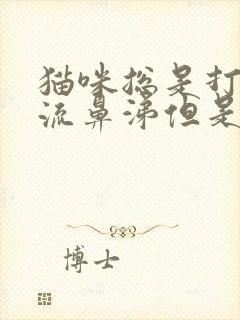 猫咪总是打
流鼻涕但是
博士